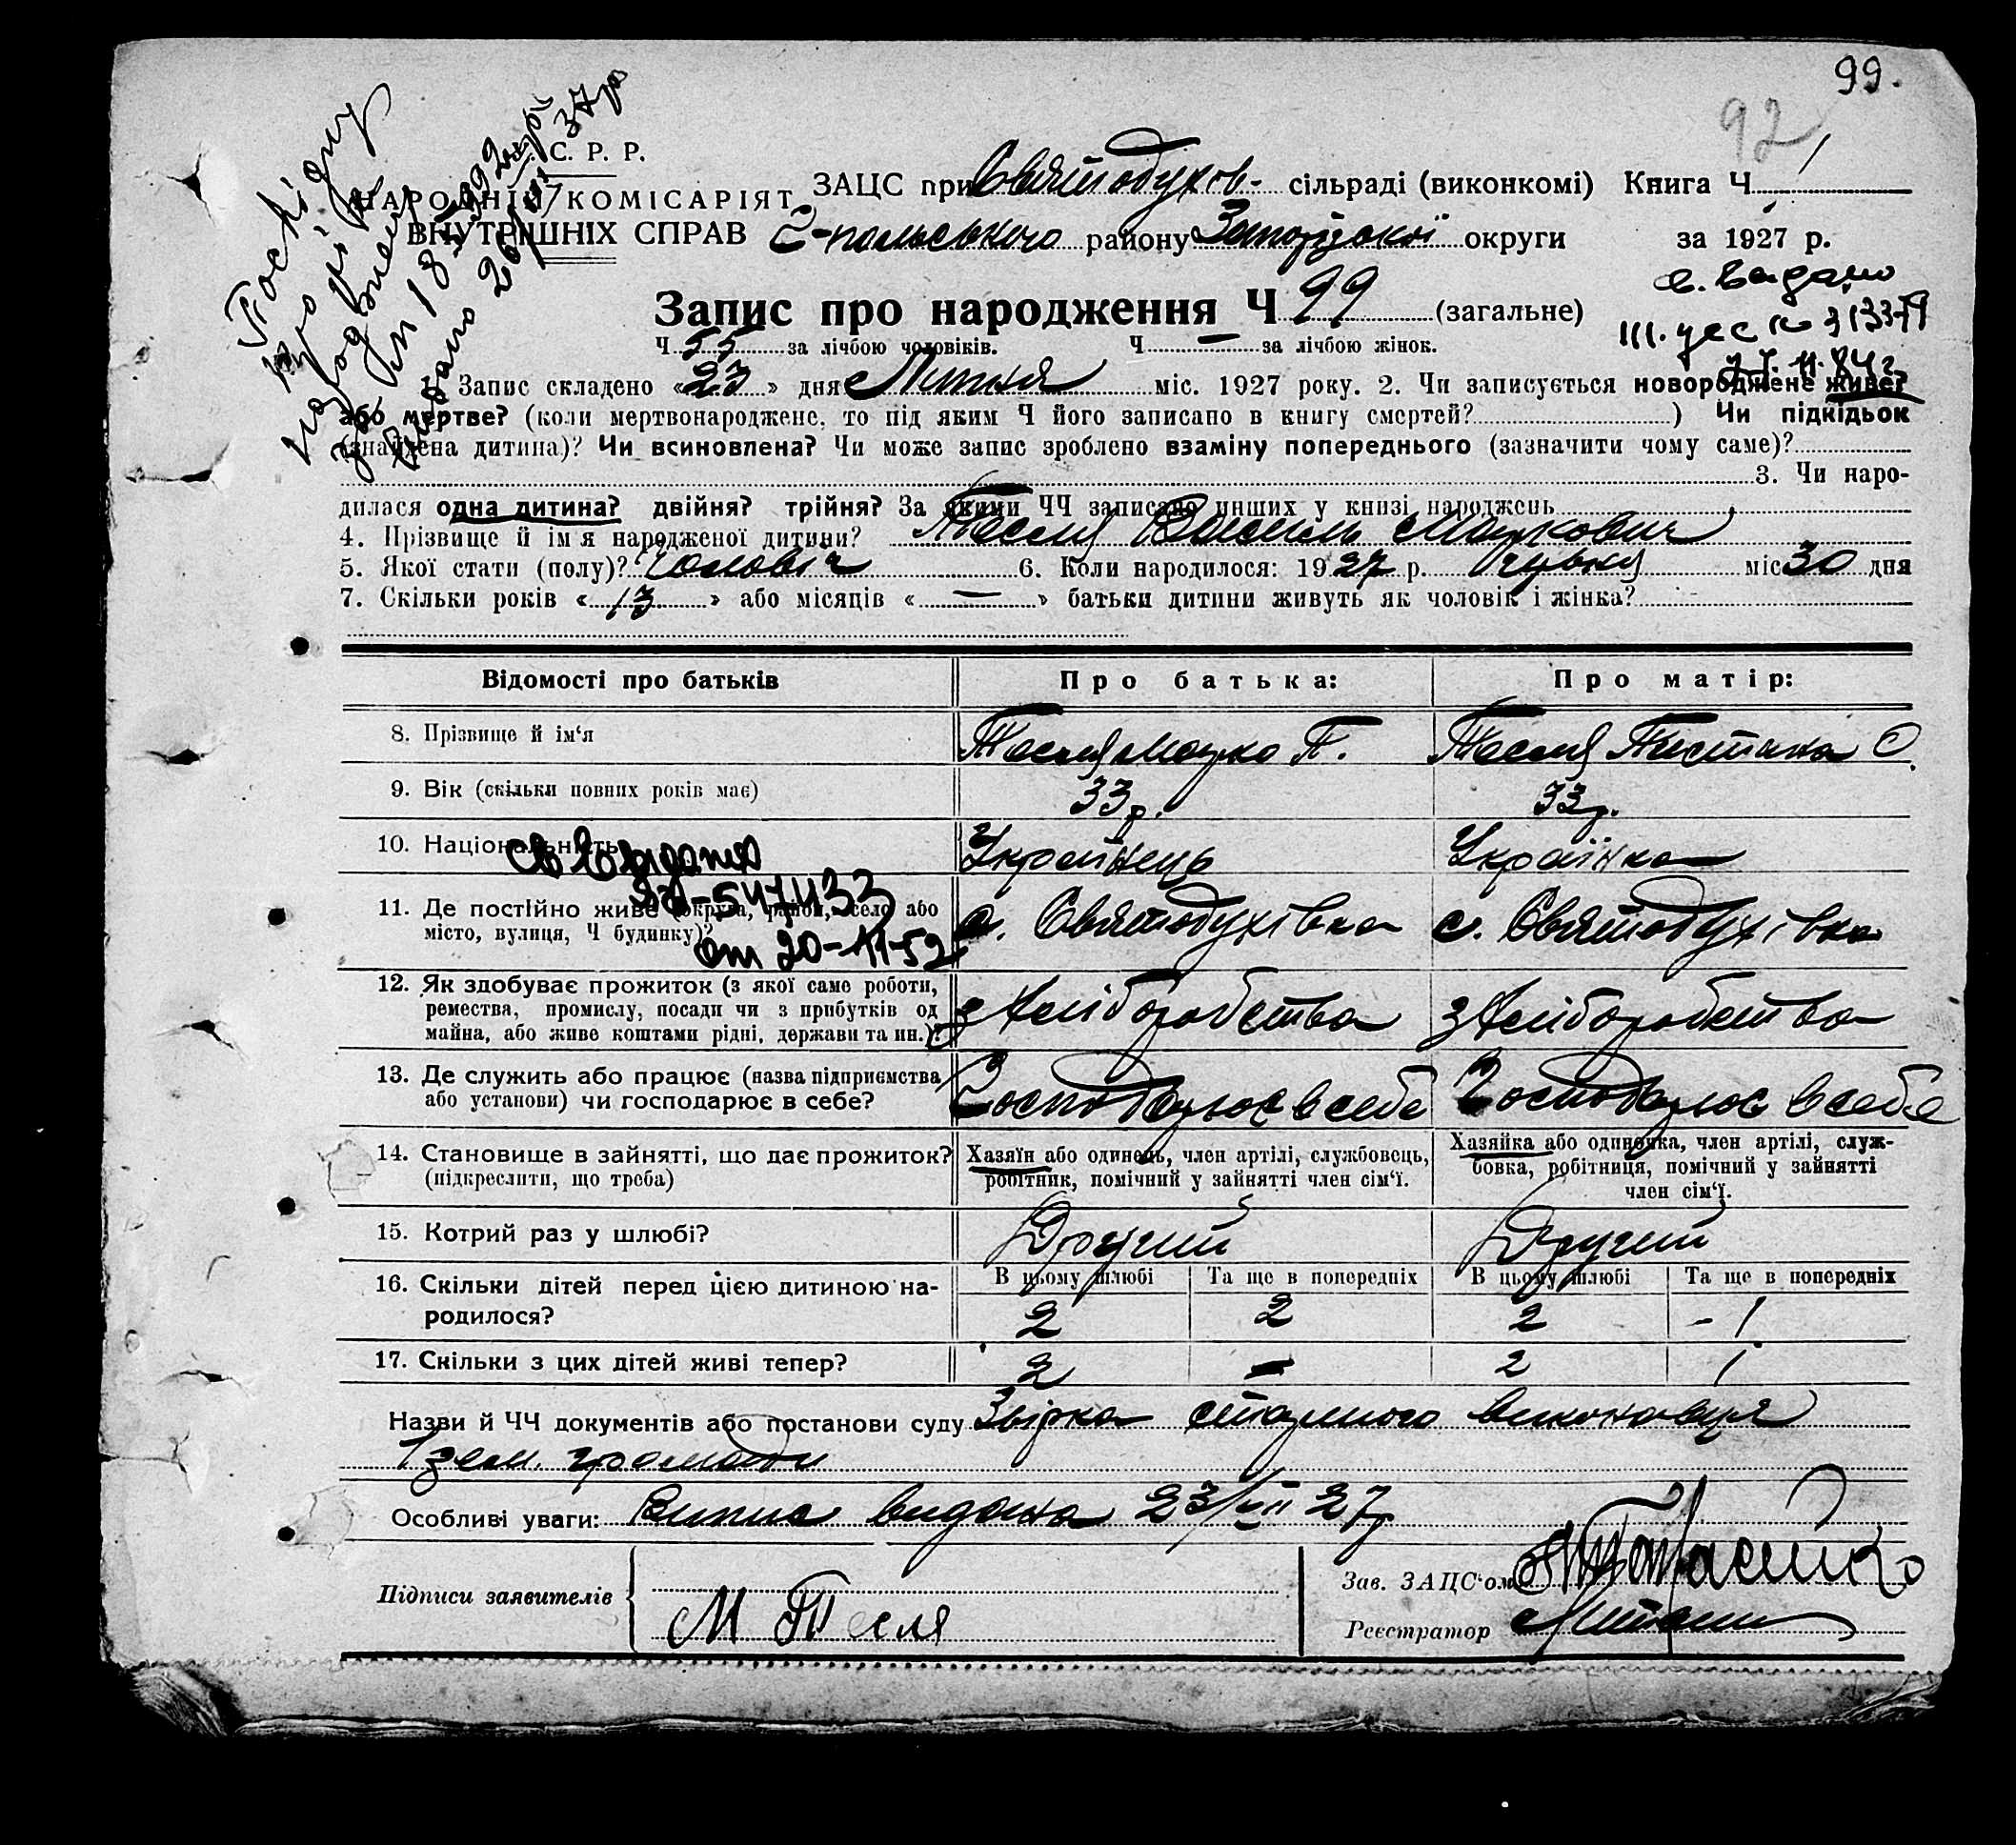 99.
92
С. Р. Р.
НАРОДНІЙ КОМІСАРІЯТ
ВНУТРІШНІХ СПРАВ
Посвідку
про
народження
за № 18
видано 26/VII 37 р
ЗАЦС при Святодухов- сільраді (виконкомі) Книга Ч 1
С-польського району Запорізької округи за 1927 р.
с. видано
ІІІ. 
Запис про народження Ч 99 (загальне)
Ч 55 за лічбою чоловіків. Ч — за лічбою жінок.
Запис складено «23» дня Липня міс. 1927 року. 2. Чи записується новороджене живе?
або мертве? (коли мертвонароджене, то під яким Ч його записано в книгу смертей? ) Чи підкідьок
(знайдена дитина)? Чи всиновлена? Чи може запис зроблено взаміну попереднього (зазначити чому саме)?
3. Чи наро-
дилася одна дитина? двійня? трійня? За якими ЧЧ записано инших у книзі народжень
4. Прізвище й ім'я народженої дитини? Тесля Василь Маркович
5. Якої стати (полу)? Чоловіч 6. Коли народилося: 1927 р. Чузня міс 30 дня
7. Скільки років «13» або місяців «—» батьки дитини живуть як чоловік і жінка?
Відомості про батьків Про батька: Про матір:
8. Прізвище й ім'я Тесля Марко П. Тесля Тистина О.
9. Вік (скільки повних років має) 33 р. 33 р.
10. Національність Українець Українка
св видано
547433
от 20-11-52
11. Де постійно живе (округа, район, село або
місто, вулиця, Ч будинку)? с. Святодухівка с. Святодухівка
12. Як здобуває прожиток (з якої саме роботи,
ремества, промислу, посади чи з прибутків од
майна, або живе коштами рідні, держави та ин.)? з хліборобства з хліборобства
13. Де служить або працює (назва підприємства
або установи) чи господарює в себе? Господарює в себе Господарює в себе
14. Становище в зайнятті, що дає прожиток?
(підкреслити, що треба)
Хазяїн або одинець, член артілі, службовець,
робітник, помічний у зайнятті член сім'ї.
Хазяйка або одиночка, член артілі, служ-
бовка, робітниця, помічний у зайнятті
член сім'ї.
15. Котрий раз у шлюбі? Другий Другий
16. Скільки дітей перед цією дитиною на-
родилося?
В цьому шлюбі Та ще в попередніх В цьому шлюбі Та ще в попередніх
2 2 2 - 1
17. Скільки з цих дітей живі тепер? 2 — 2 1
Назви й ЧЧ документів або постанови суду Звірка старшого виконавця
1 зем. громади
Особливі уваги: Випис видана 23/VII 27 р
Підписи заявителів М Тесля
Зав. ЗАЦС'ом
Реєстратор